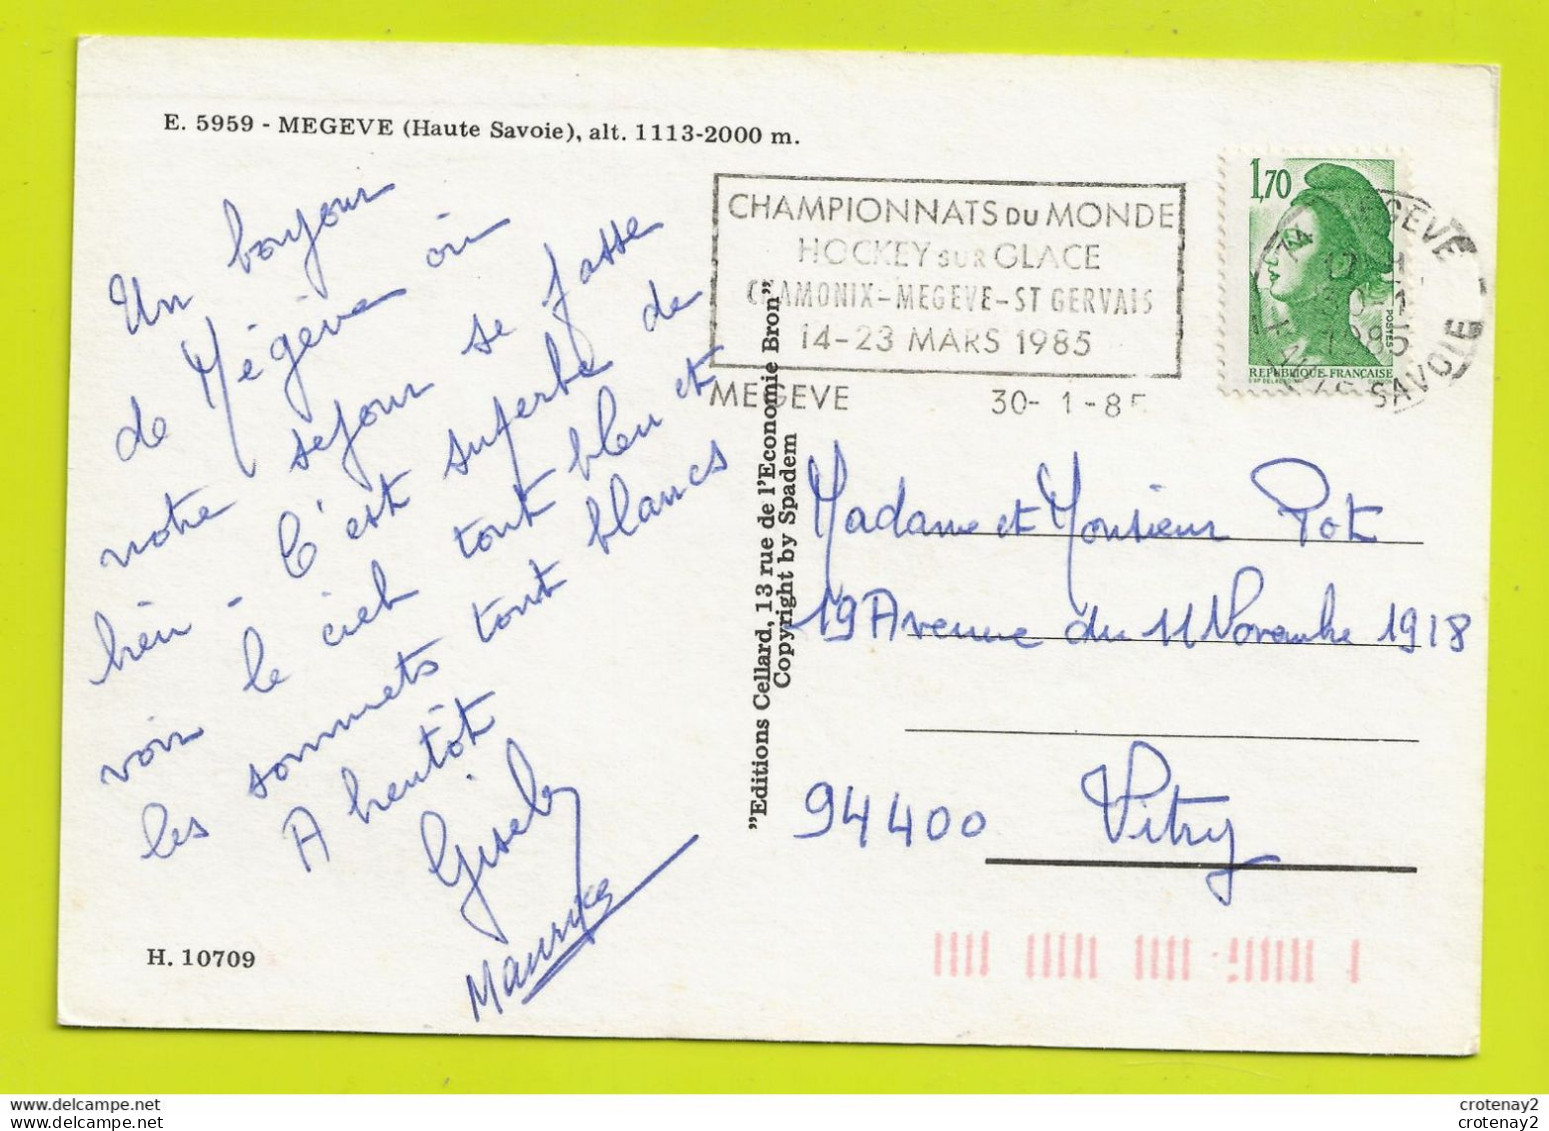 E. 5959 - MEGEVE (Haute Savoie), alt. 1113-2000 m.
Un bonjour
de Mégève où
notre séjour se passe
bien - C'est superbe de
voir le ciel tout bleu et
les sommets tout blancs
A bientôt
Maurice
H. 10709
"Editions Cellard, 13 rue de l'Economie Bron"
Copyright by Spadem
CHAMPIONNATS DU MONDE
HOCKEY SUR GLACE
CHAMONIX-MEGEVE-ST GERVAIS
14-23 MARS 1985
MEGEVE 30-1-85
1,70
POSTES
REPUBLIQUE FRANÇAISE
74 MEGEVE
1985
HAUTE SAVOIE
Madame et Monsieur Pot
19 Avenue du 11 Novembre 1918
94400 Vitry
crotenay2
crotenay2
crotenay2
crotenay2